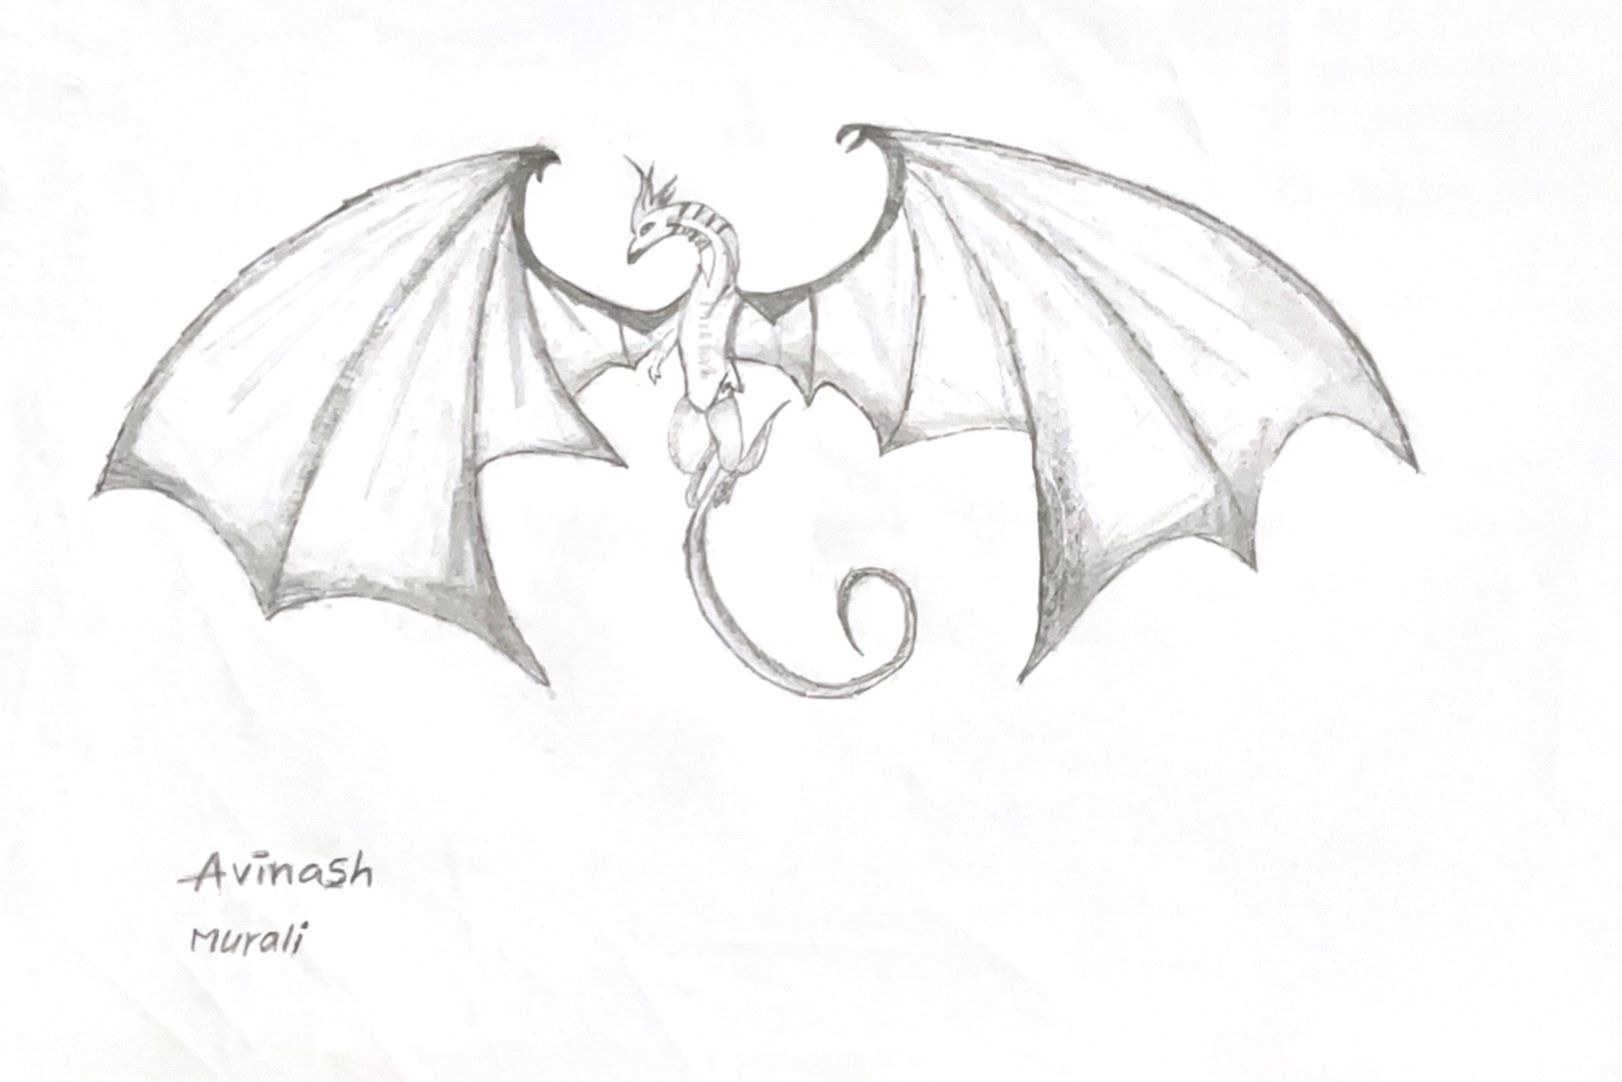 Avinash
Murali